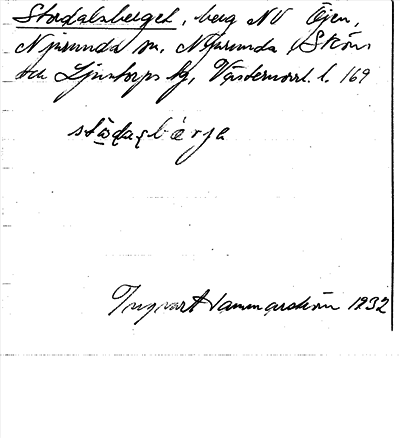 Stadalsberget, berg NV Öjen,
Njurunda sn, Njurunda, Sköns
och Ljustorps tg, Västernorrl. l. 169
städasbärje
Ingvart Hammarström 1932